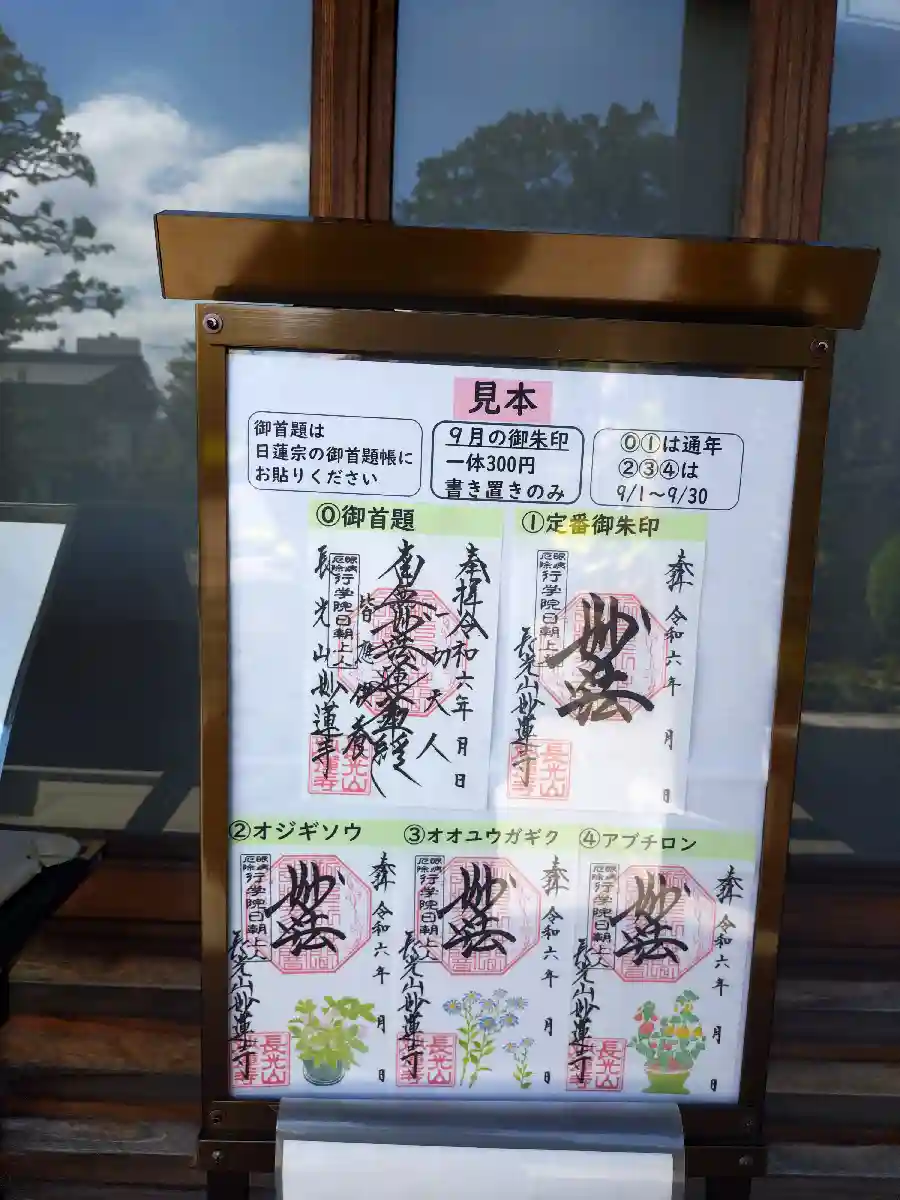 見本
御首題は
日蓮宗の御首題帳に
お貼りください
9月の御朱印
一体300円
書き置きのみ
⓪①は通年
②③④は
9/1～9/30
⓪御首題
奉拝 令和六年 月 日
一切天人
南無妙法蓮華経
皆應供養
眼病
厄除
行学院日朝上人
長光山妙蓮寺
長光山
妙蓮寺
①定番御朱印
奉拝 令和六年 月 日
妙法
眼病
厄除
行学院日朝上人
長光山妙蓮寺
長光山
妙蓮寺
②オジギソウ
奉拝 令和六年 月 日
妙法
眼病
厄除
行学院日朝上人
長光山妙蓮寺
長光山
③オオユウガギク
奉拝 令和六年 月 日
妙法
眼病
厄除
行学院日朝上人
長光山妙蓮寺
長光山
④アブチロン
奉拝 令和六年 月 日
妙法
眼病
厄除
行学院日朝上人
長光山妙蓮寺
長光山